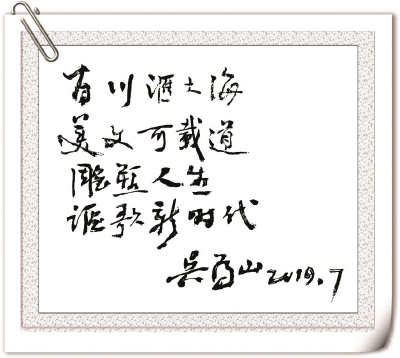 百川滙大海
美文可载道
雕塑人生
讴歌新时代
吴为山2019.7